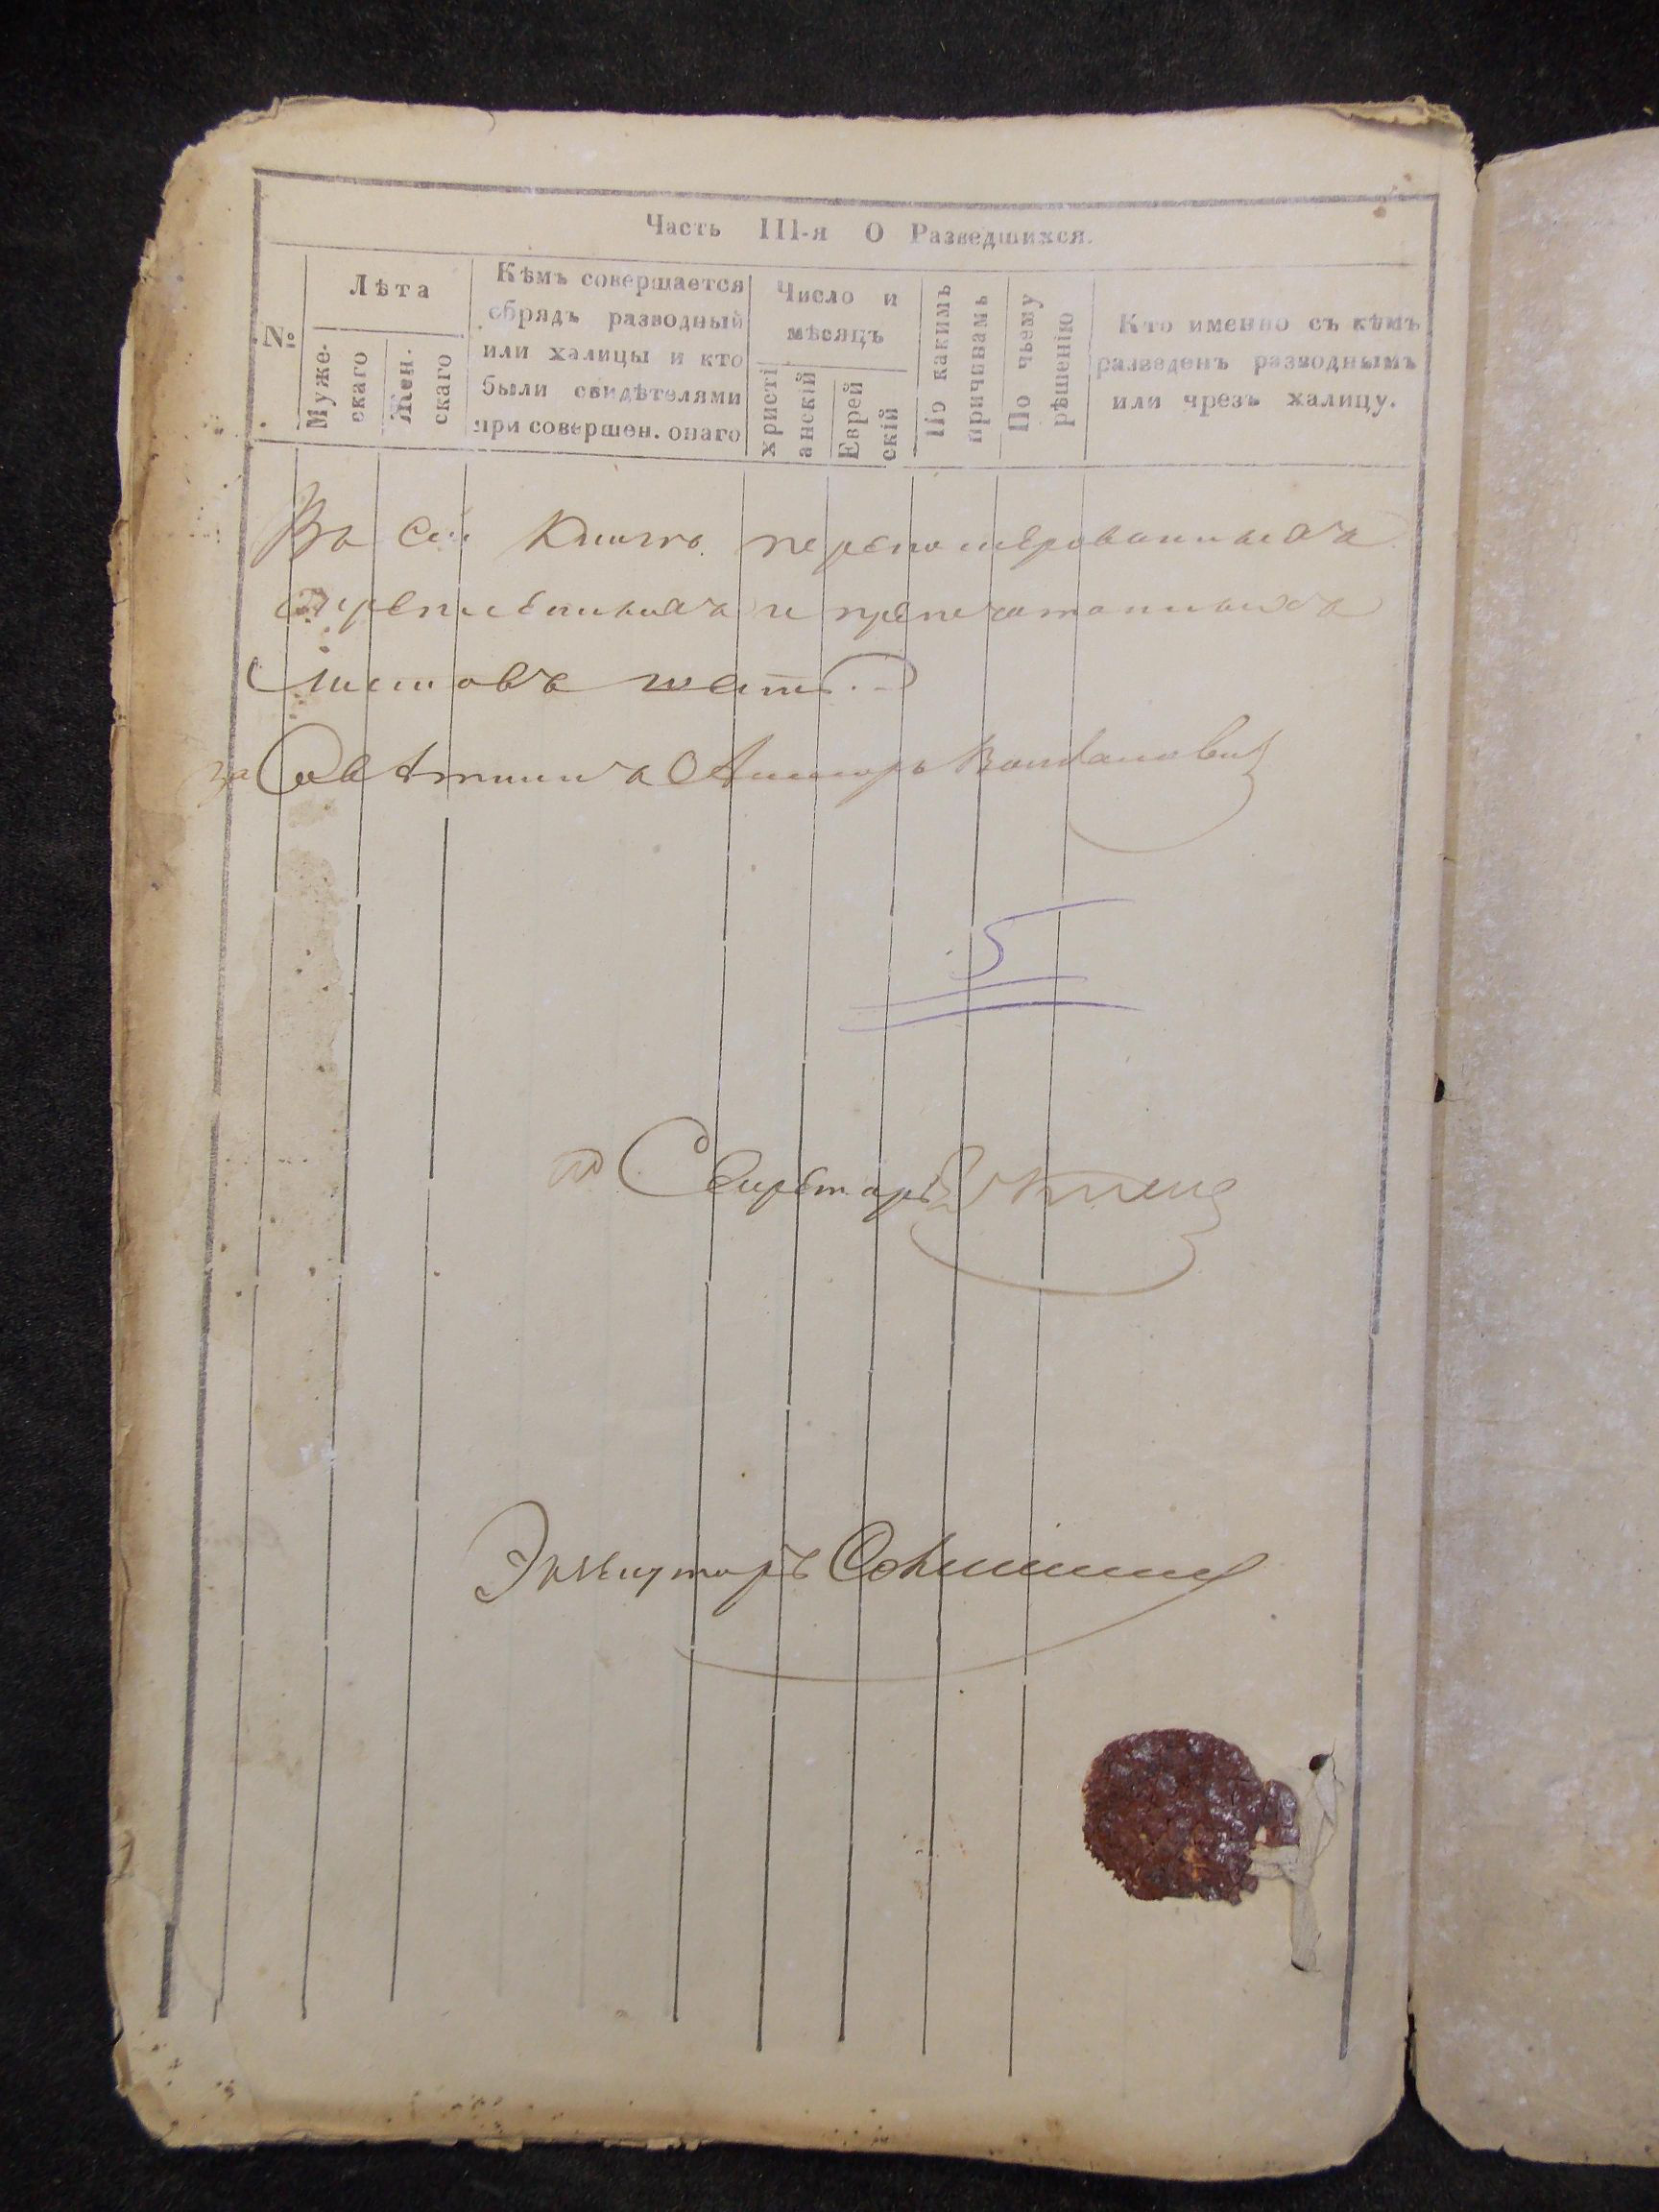 Часть III-я О Разведшихся.
№
Лѣта
Муже-
скаго
Жен.
скаго
Кѣмъ совершается
обрядъ разводный
или халицы и кто
были свидѣтелями
при совершен. онаго
Число и
мѣсяцъ
христі
анскій
Еврей
скій
По какимъ
причинамъ
По чьему
рѣшенію
Кто именно съ кѣмъ
разведенъ разводнымъ
или чрезъ халицу.
Въ сей Книгѣ перенумерованныхъ
скрепленныхъ и припечатанныхъ
листовъ шесть.
за Совѣтника
5
Секретарь
Экзекуторъ